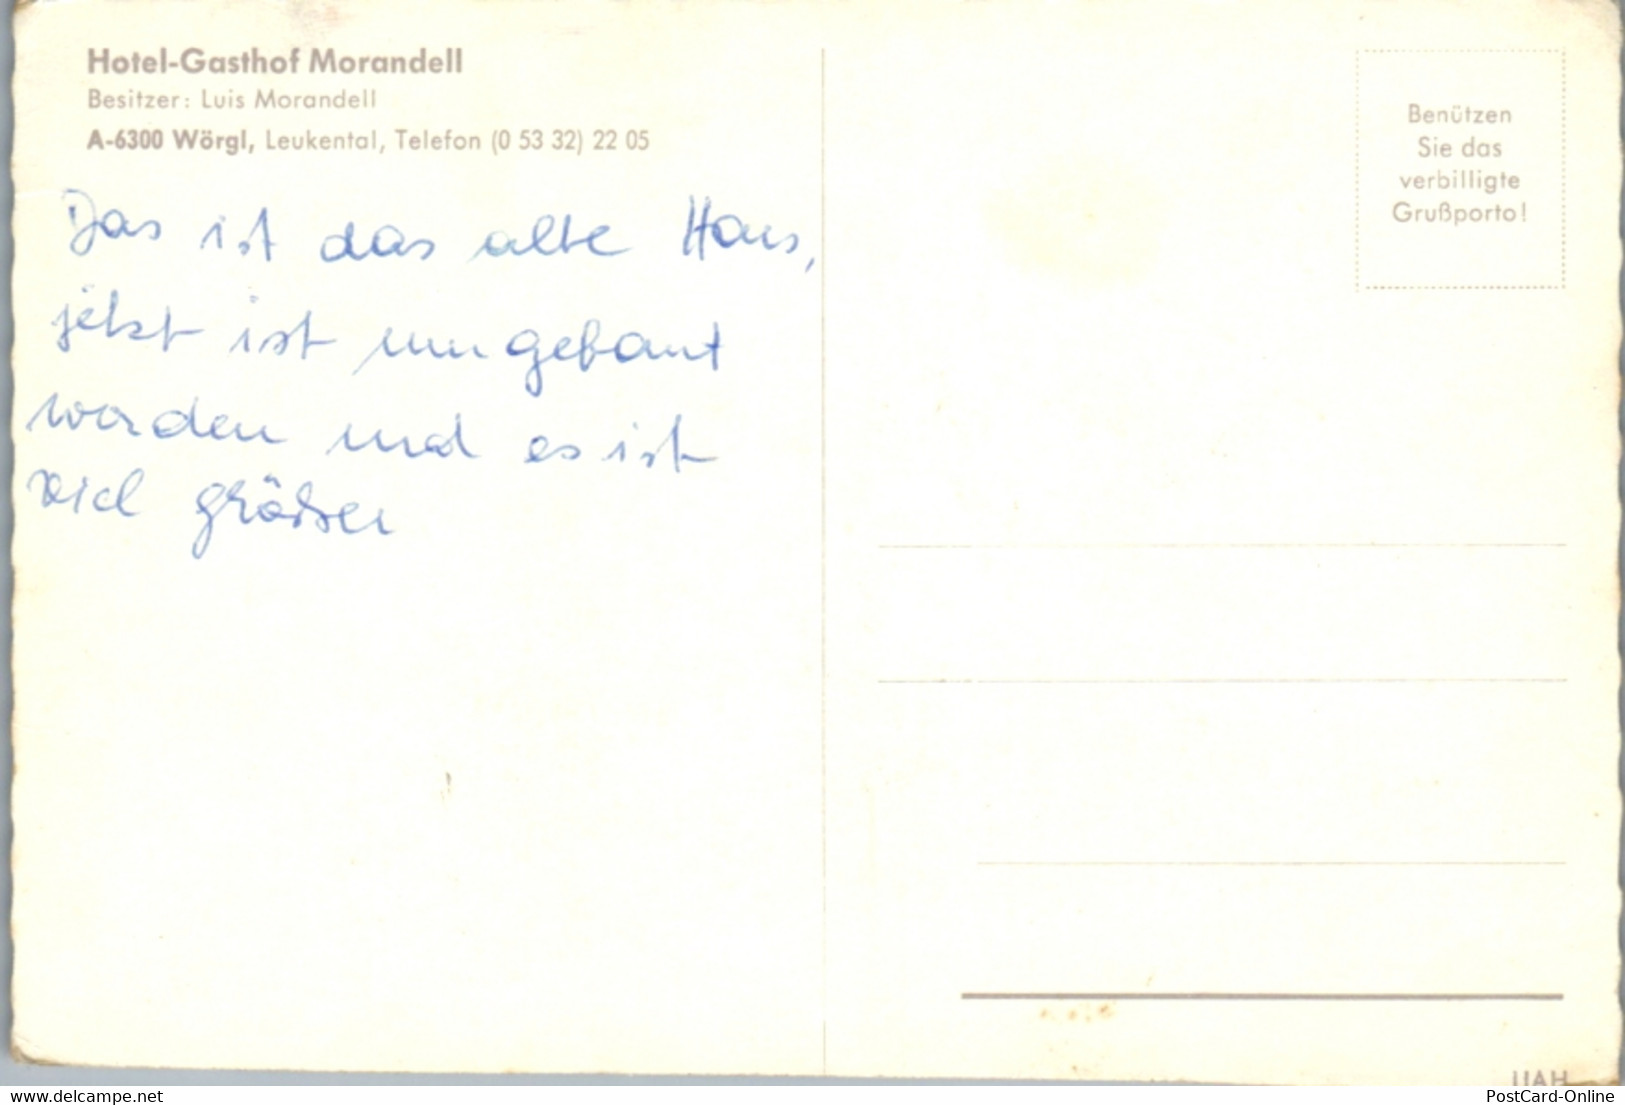 Hotel-Gasthof Morandell
Besitzer: Luis Morandell
A-6300 Wörgl, Leukental, Telefon (0 53 32) 22 05
Benützen
Sie das
verbilligte
Grußporto!
Das ist das alte Haus,
jetzt ist umgebaut
worden und es ist
viel größer
delcampe.net
PostCard-Online